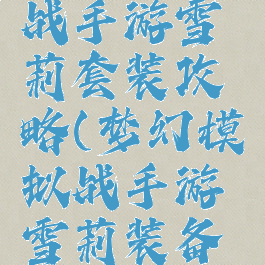 战手游雪
莉套装攻
略(梦幻模
拟战手游
雪莉装备